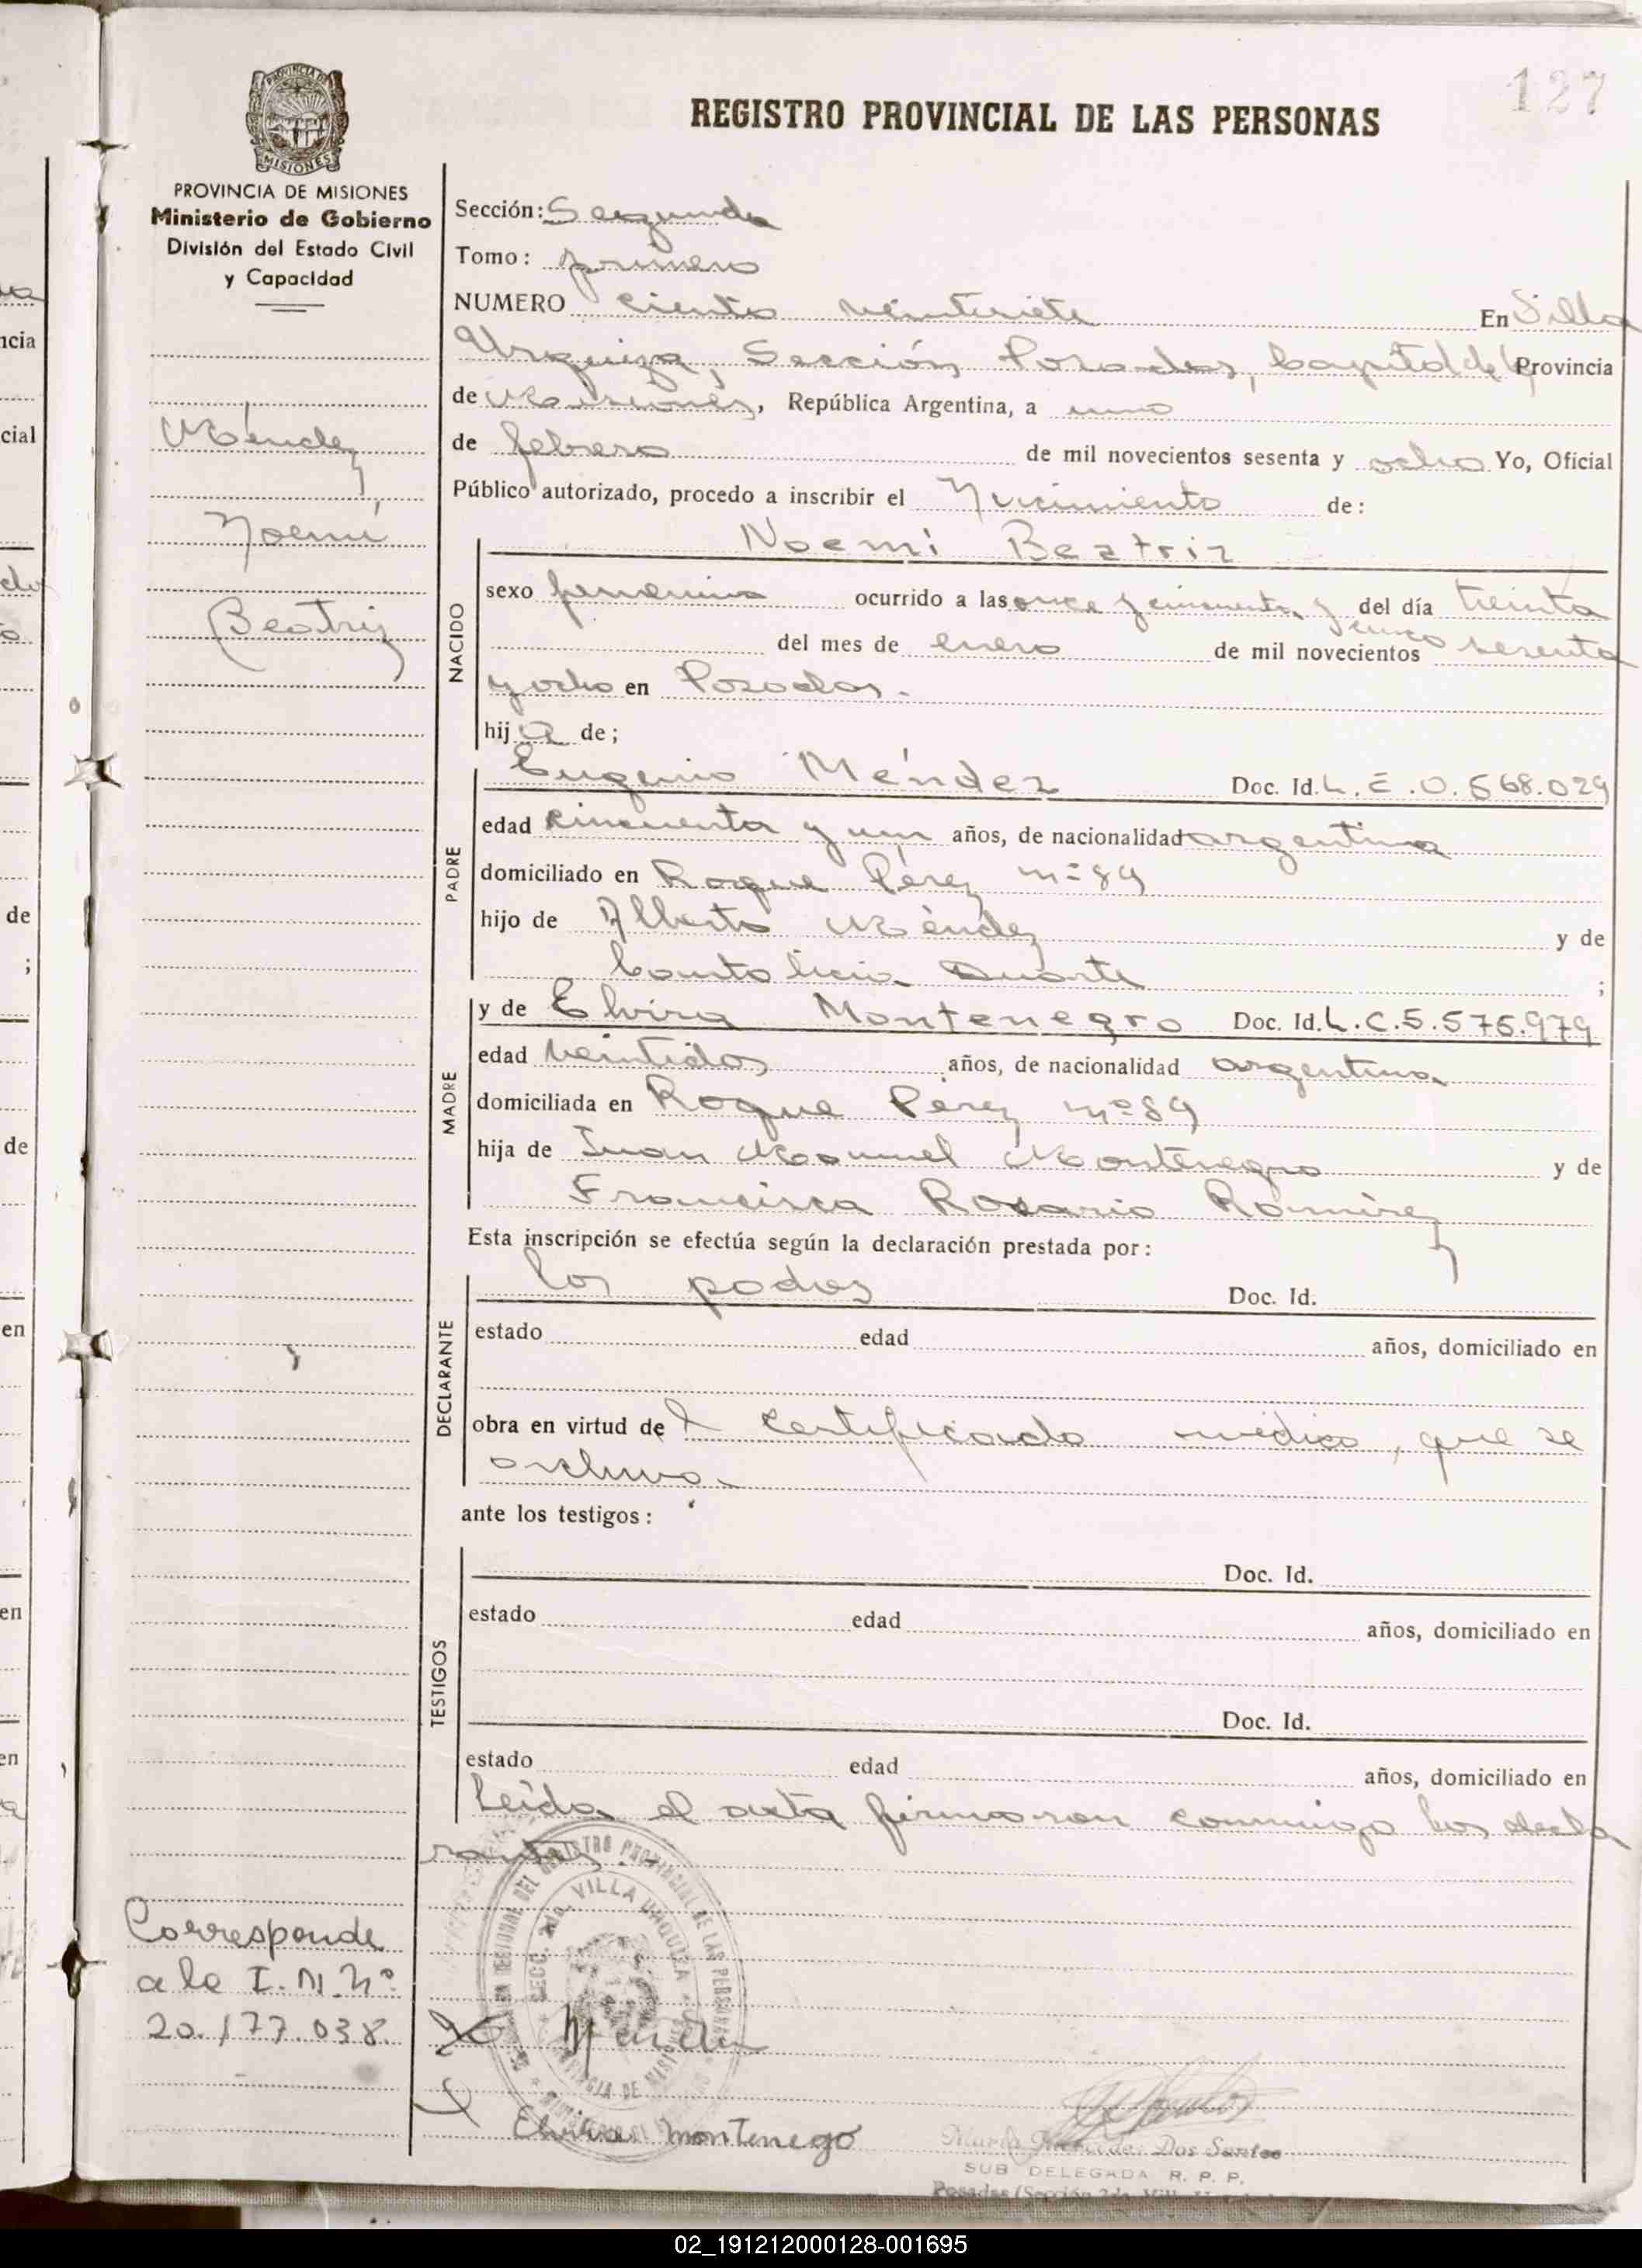 127
REGISTRO PROVINCIAL DE LAS PERSONAS
PROVINCIA DE MISIONES
Ministerio de Gobierno
División del Estado Civil
y Capacidad
Sección: Segunda
Tomo: primero
NUMERO ciento veintisiete En Villa
Urquiza, Sección Posadas, Capital de la Provincia
de Misiones, República Argentina, a uno
de febrero de mil novecientos sesenta y ocho Yo, Oficial
Público autorizado, procedo a inscribir el Nacimiento de:
Méndez
Noemí
Beatriz
NACIDO
Noemi Beatriz
sexo femenino ocurrido a las once y cincuenta y cinco del día treinta
del mes de enero de mil novecientos sesenta
y ocho en Posadas.
hija de;
PADRE
Eugenio Méndez Doc. Id. L.E.0.568.029
edad cincuenta y un años, de nacionalidad argentina
domiciliado en Roque Pérez nº 89
hijo de Alberto Méndez y de
Duarte ;
MADRE
y de Elvira Montenegro Doc. Id. L.C.5.575.979
edad veintidos años, de nacionalidad argentina
domiciliada en Roque Pérez nº 89
hija de Juan Manuel Montenegro y de
Francisca Rosario Ramírez
Esta inscripción se efectúa según la declaración prestada por:
DECLARANTE
los padres Doc. Id.
estado edad años, domiciliado en
obra en virtud del certificado médico, que se
archiva.
ante los testigos:
TESTIGOS
Doc. Id.
estado edad años, domiciliado en
Doc. Id.
estado edad años, domiciliado en
Leída el acta firmaron conmigo los decla
rantes.-
SECC. 2da. VILLA URQUIZA
Corresponde
a la I.M.Nº
20.177.038.
Méndez
Elvira montenego
Dos Santos
SUB DELEGADA R. P. P.
02_191212000128-001695